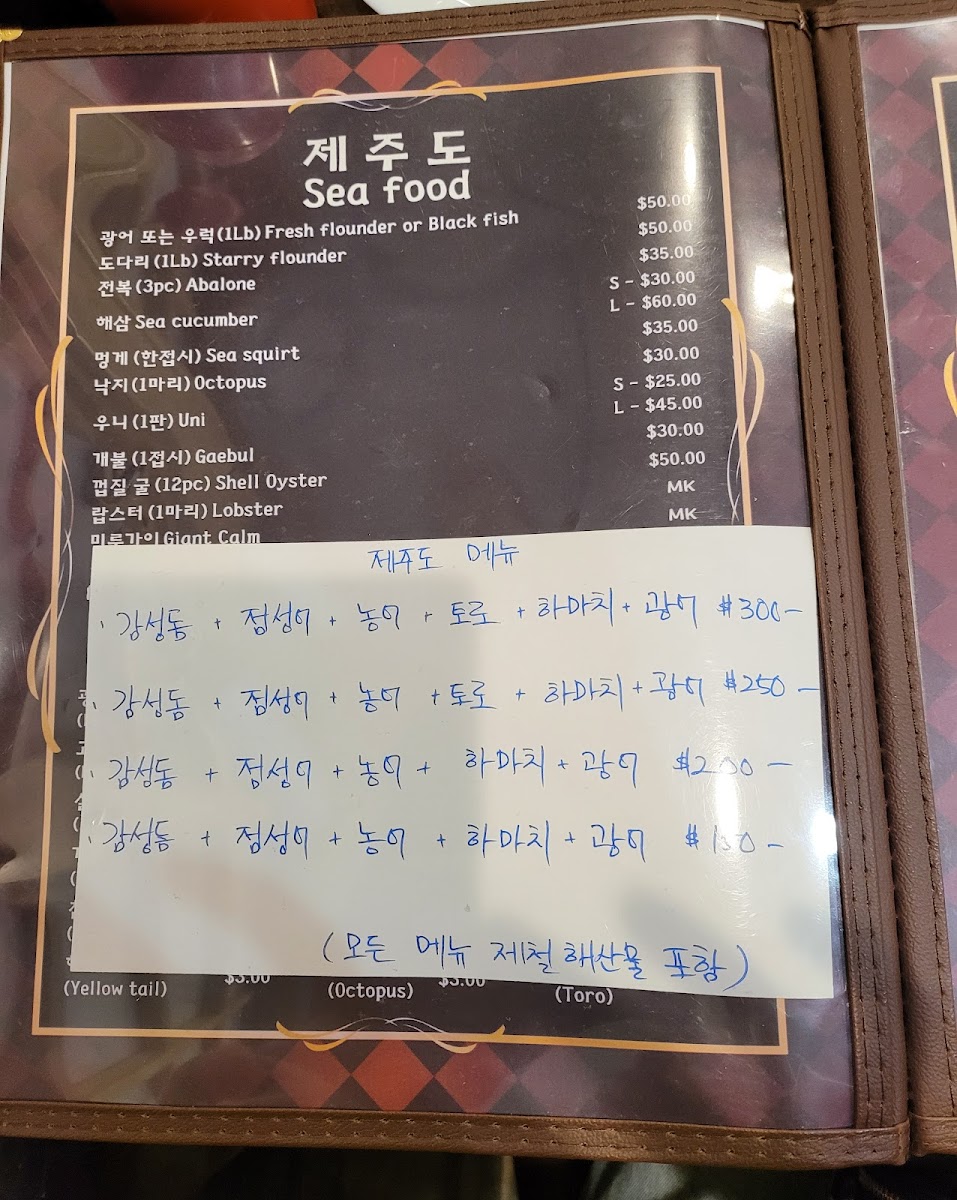 제주도
Sea food
광어 또는 우럭(1Lb) Fresh flounder or Black fish $50.00
도다리(1Lb) Starry flounder $50.00
전복(3pc) Abalone $35.00
해삼 Sea cucumber S - $30.00
L - $60.00
멍게(한접시) Sea squirt $35.00
낙지(1마리) Octopus $30.00
우니(1판) Uni S - $25.00
L - $45.00
개불(1접시) Gaebul $30.00
껍질 굴(12pc) Shell Oyster $50.00
랍스터(1마리) Lobster MK
미루가이 Giant Calm MK
제주도 메뉴
· 감성돔 + 점성어 + 농어 + 토로 + 하마치 + 광어 $300-
· 감성돔 + 점성어 + 농어 + 토로 + 하마치 + 광어 $250-
· 감성돔 + 점성어 + 농어 + 하마치 + 광어 $200-
· 감성돔 + 점성어 + 농어 + 하마치 + 광어 $150-
(모든 메뉴 제철해산물 포함)
$3.00 $3.00
(Yellow tail) (Octopus) (Toro)